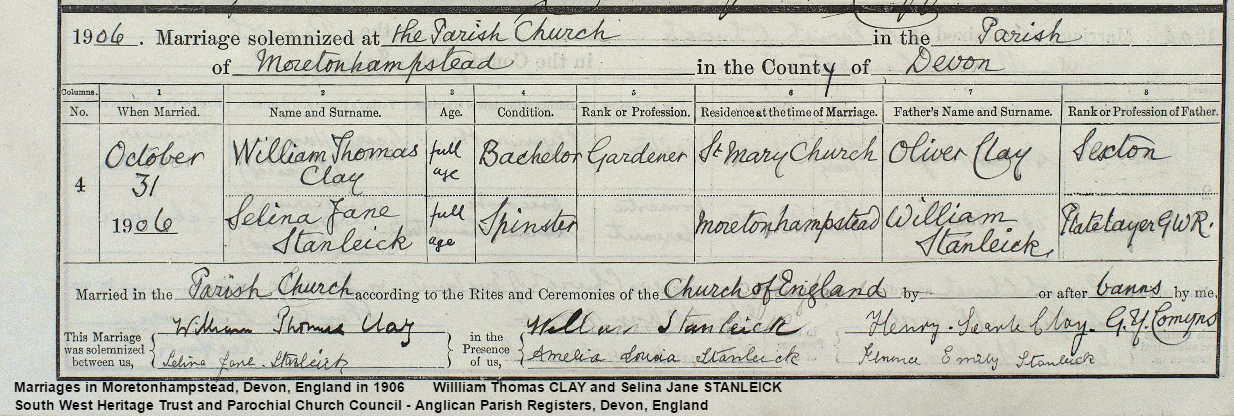 1906. Marriage solemnized at the Parish Church in the Parish
of Moretonhampstead in the County of Devon
Columns. 1 2 3 4 5 6 7 8
No. When Married. Name and Surname. Age. Condition. Rank or Profession. Residence at the time of Marriage. Father's Name and Surname. Rank or Profession of Father.
4 October 31 1906
William Thomas Clay full age Bachelor Gardener St Mary Church Oliver Clay Sexton
Selina Jane Stanleick full age Spinster Moretonhampstead William Stanleick Platelayer G.W.R.
Married in the Parish Church according to the Rites and Ceremonies of the Church of England by or after banns by me,
This Marriage was solemnized between us, William Thomas Clay in the Presence of us, William Stanleick Henry Clay. Comyns
Selina Jane Stanleick Amelia Louisa Stanleick Emily Stanleick
Marriages in Moretonhampstead, Devon, England in 1906 Willliam Thomas CLAY and Selina Jane STANLEICK
South West Heritage Trust and Parochial Church Council - Anglican Parish Registers, Devon, England